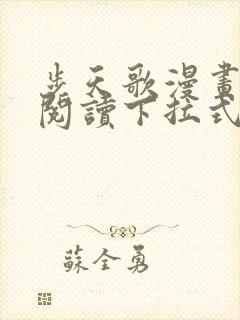 步天歌漫畫
閱讀下拉式
蘇全勇